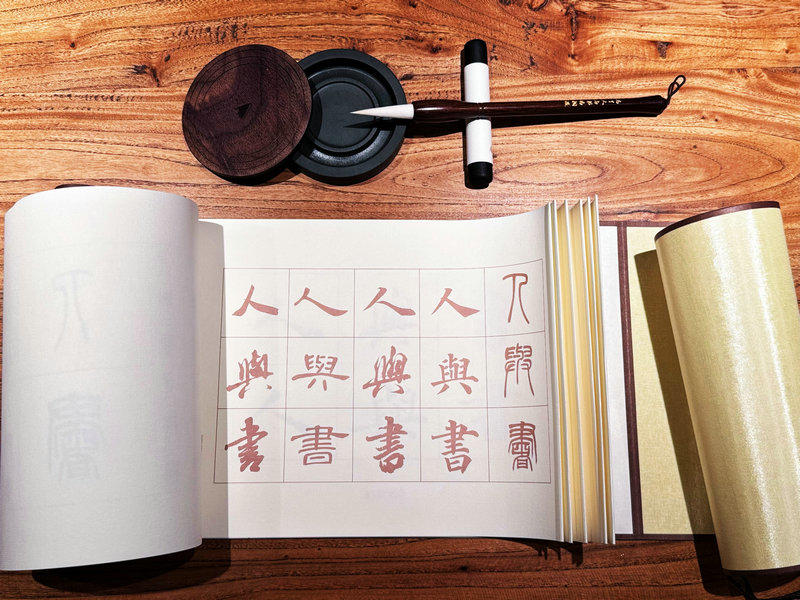 人人人人人
與與與與與
書書書書書